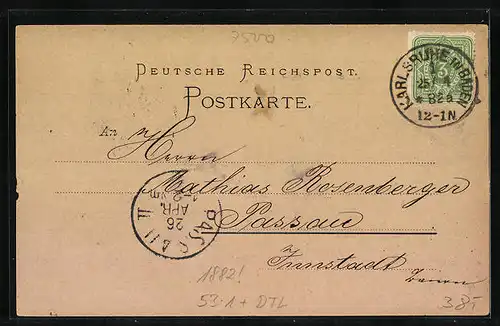 7500
DEUTSCHE REICHSPOST.
POSTKARTE.
KARLSRUHE IN BADEN
25
82
12-1N
An
Herrn
Mathias Rosenberger
Passau
Innstadt
PASSAU II
26
APR.
1-2
1882!
53.1 + DTL